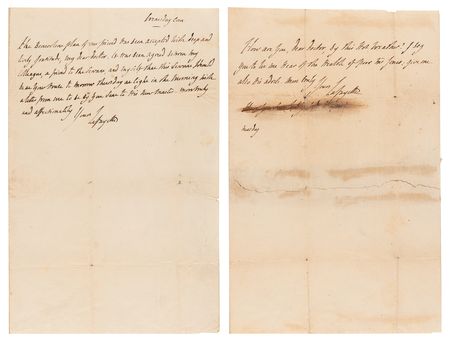 The Benevolent plan of our friend has been accepted with deep and
lively gratitude, my dear Doctor. It has been agreed between my
Colleague, a friend to the Servant, and myself that this Servant should
be at your House to morrow thursday at eight in the morning with
a letter from me to be by you sent to his new master. most truly
and affectionately Yours
Lafayette
How are you, dear Doctor, by this Hot Weather? I beg
you to let me hear of the health of your
also the Work. most truly
Yours
Lafayette